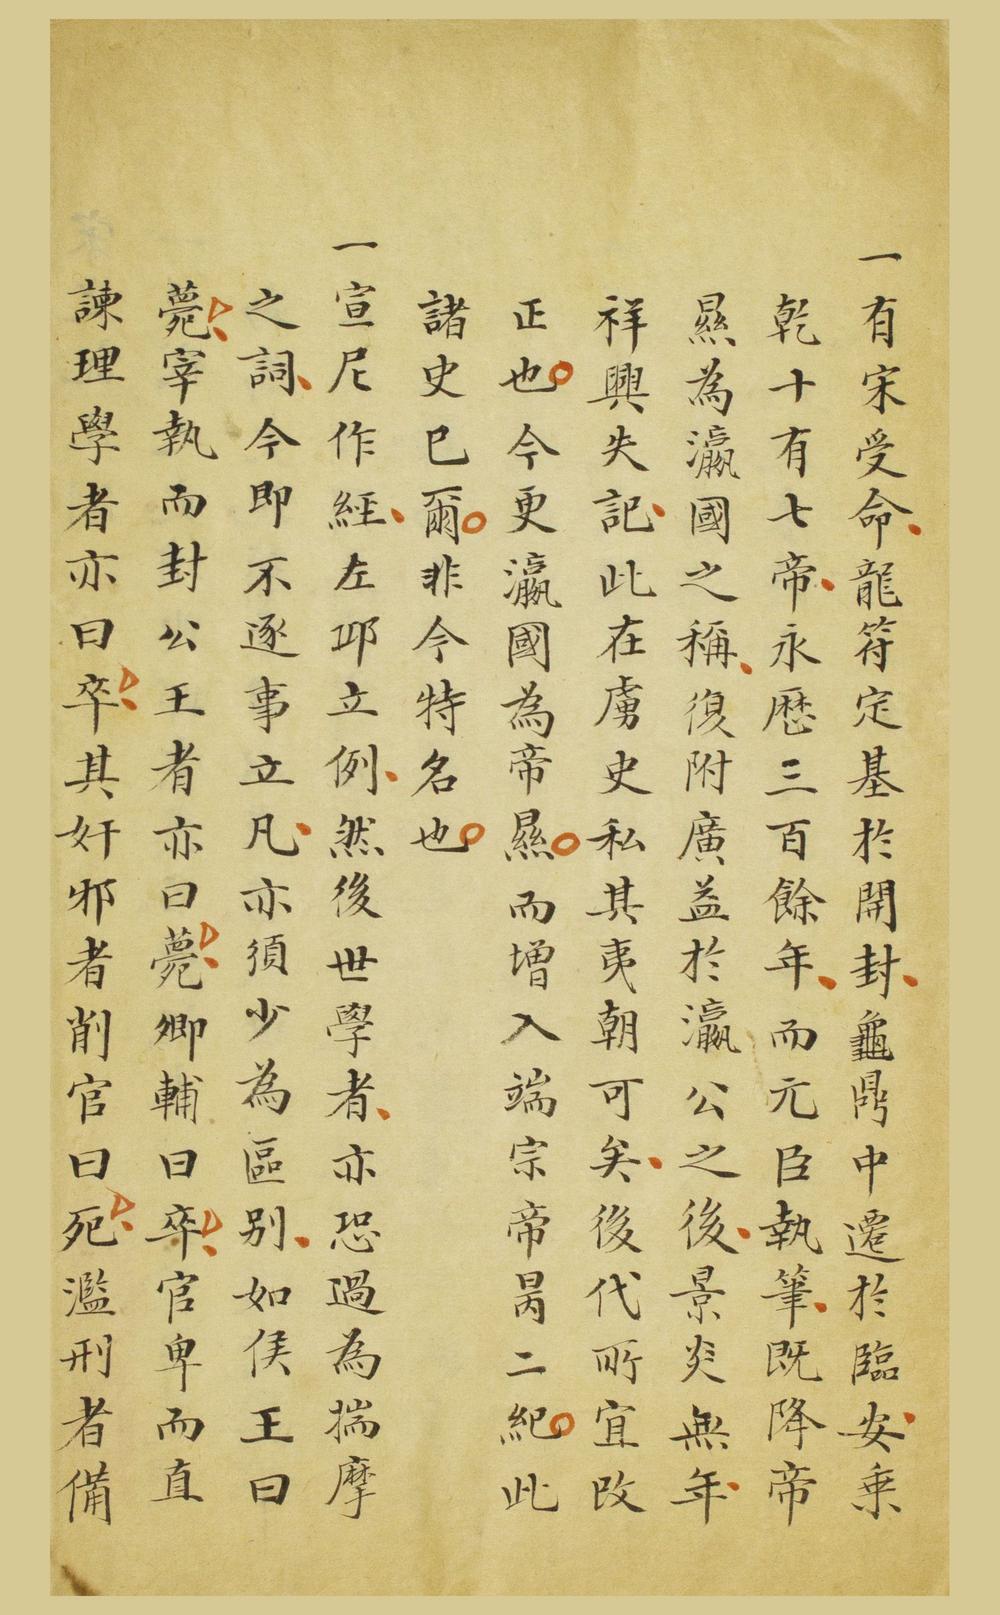 一有宋受命龍符定基於開封龜鼎中遷於臨安乗
乾十有七帝永歷三百餘年而元臣執筆既降帝
㬎為瀛國之稱復附廣益於瀛公之後景炎無年
祥興失記此在虜史私其夷朝可矣後代所宜改
正也今更瀛國為帝㬎而增入端宗帝昺二紀此
諸史已爾非今特名也
一宣尼作經左邱立例然後世學者亦恐過為揣摩
之詞今即不逐事立凡亦須少為區别如侯王曰
薨宰執而封公王者亦曰薨卿輔曰卒官卑而直
諫理學者亦曰卒其奸邪者削官曰死濫刑者備